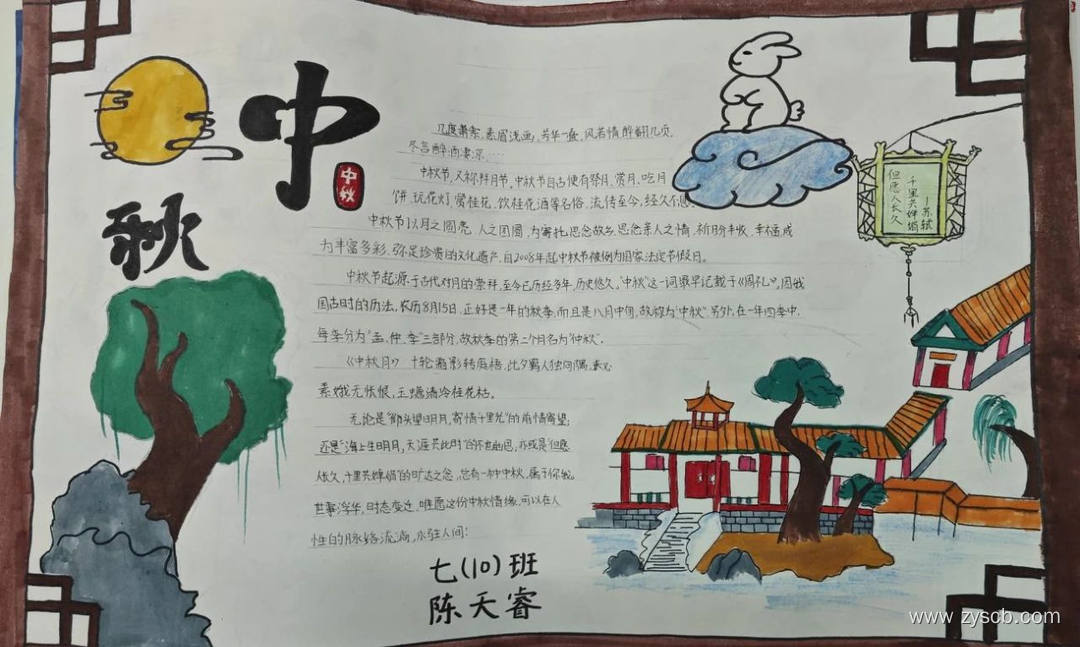 中秋
中秋
几度萧条，素眉浅画，芳华一盏，风若情醉翻几页，
尽言醉酒妻凉……
中秋节，又称拜月节。中秋节自古便有祭月、赏月、吃月
饼、玩花灯、赏桂花、饮桂花酒等名俗，流传至今，经久不息。
中秋节以月之圆亮，人之团圆，为寄托思念故乡，思念亲人之情，祈盼丰收、幸福，成
为丰富多彩、弥足珍贵的文化遗产，自2008年起中秋节被例为国家法定节假日。
中秋节起源于古代对月的崇拜，至今已历经多年，历史悠久。“中秋”这一词最早记载于《周礼》。因我
国古时的历法，农历8月15日，正好是一年的秋季，而且是八月中旬，故称为“中秋”。另外，在一年四季中，
每季分为“孟、仲、季”三部分，故秋季的第二个月名为“仲秋”。
《中秋月》 十轮霜影转庭梧，此夕羁人独向隅，
素娥无怅恨，玉蟾清冷桂花枯。
无论是“举头望明月，寄情千里光”的
还是“海上生明月，天涯共此时”的 亦或是“但愿
人长久，千里共婵娟”的旷达之念，总有一种中秋，属于你我。
世事浮华，时态变迁，唯愿这份中秋情缘，可以在人
性的脉络流淌，永驻人间！
但愿人长久
千里共婵娟
—苏轼
七(10)班
陈天睿
www.zyscb.com